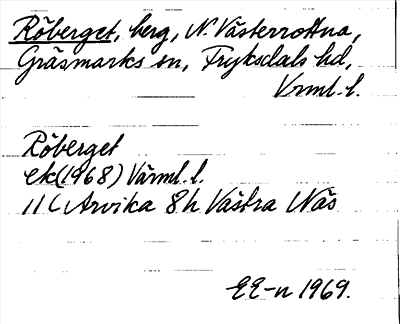 Röberget, berg, N. Västerrottna,
Gräsmarks sn, Fryksdals hd,
Vrml. l.
Röberget
ek (1968) Värml. l.
11C Arvika 8h Västra Näs
EE-n 1969.